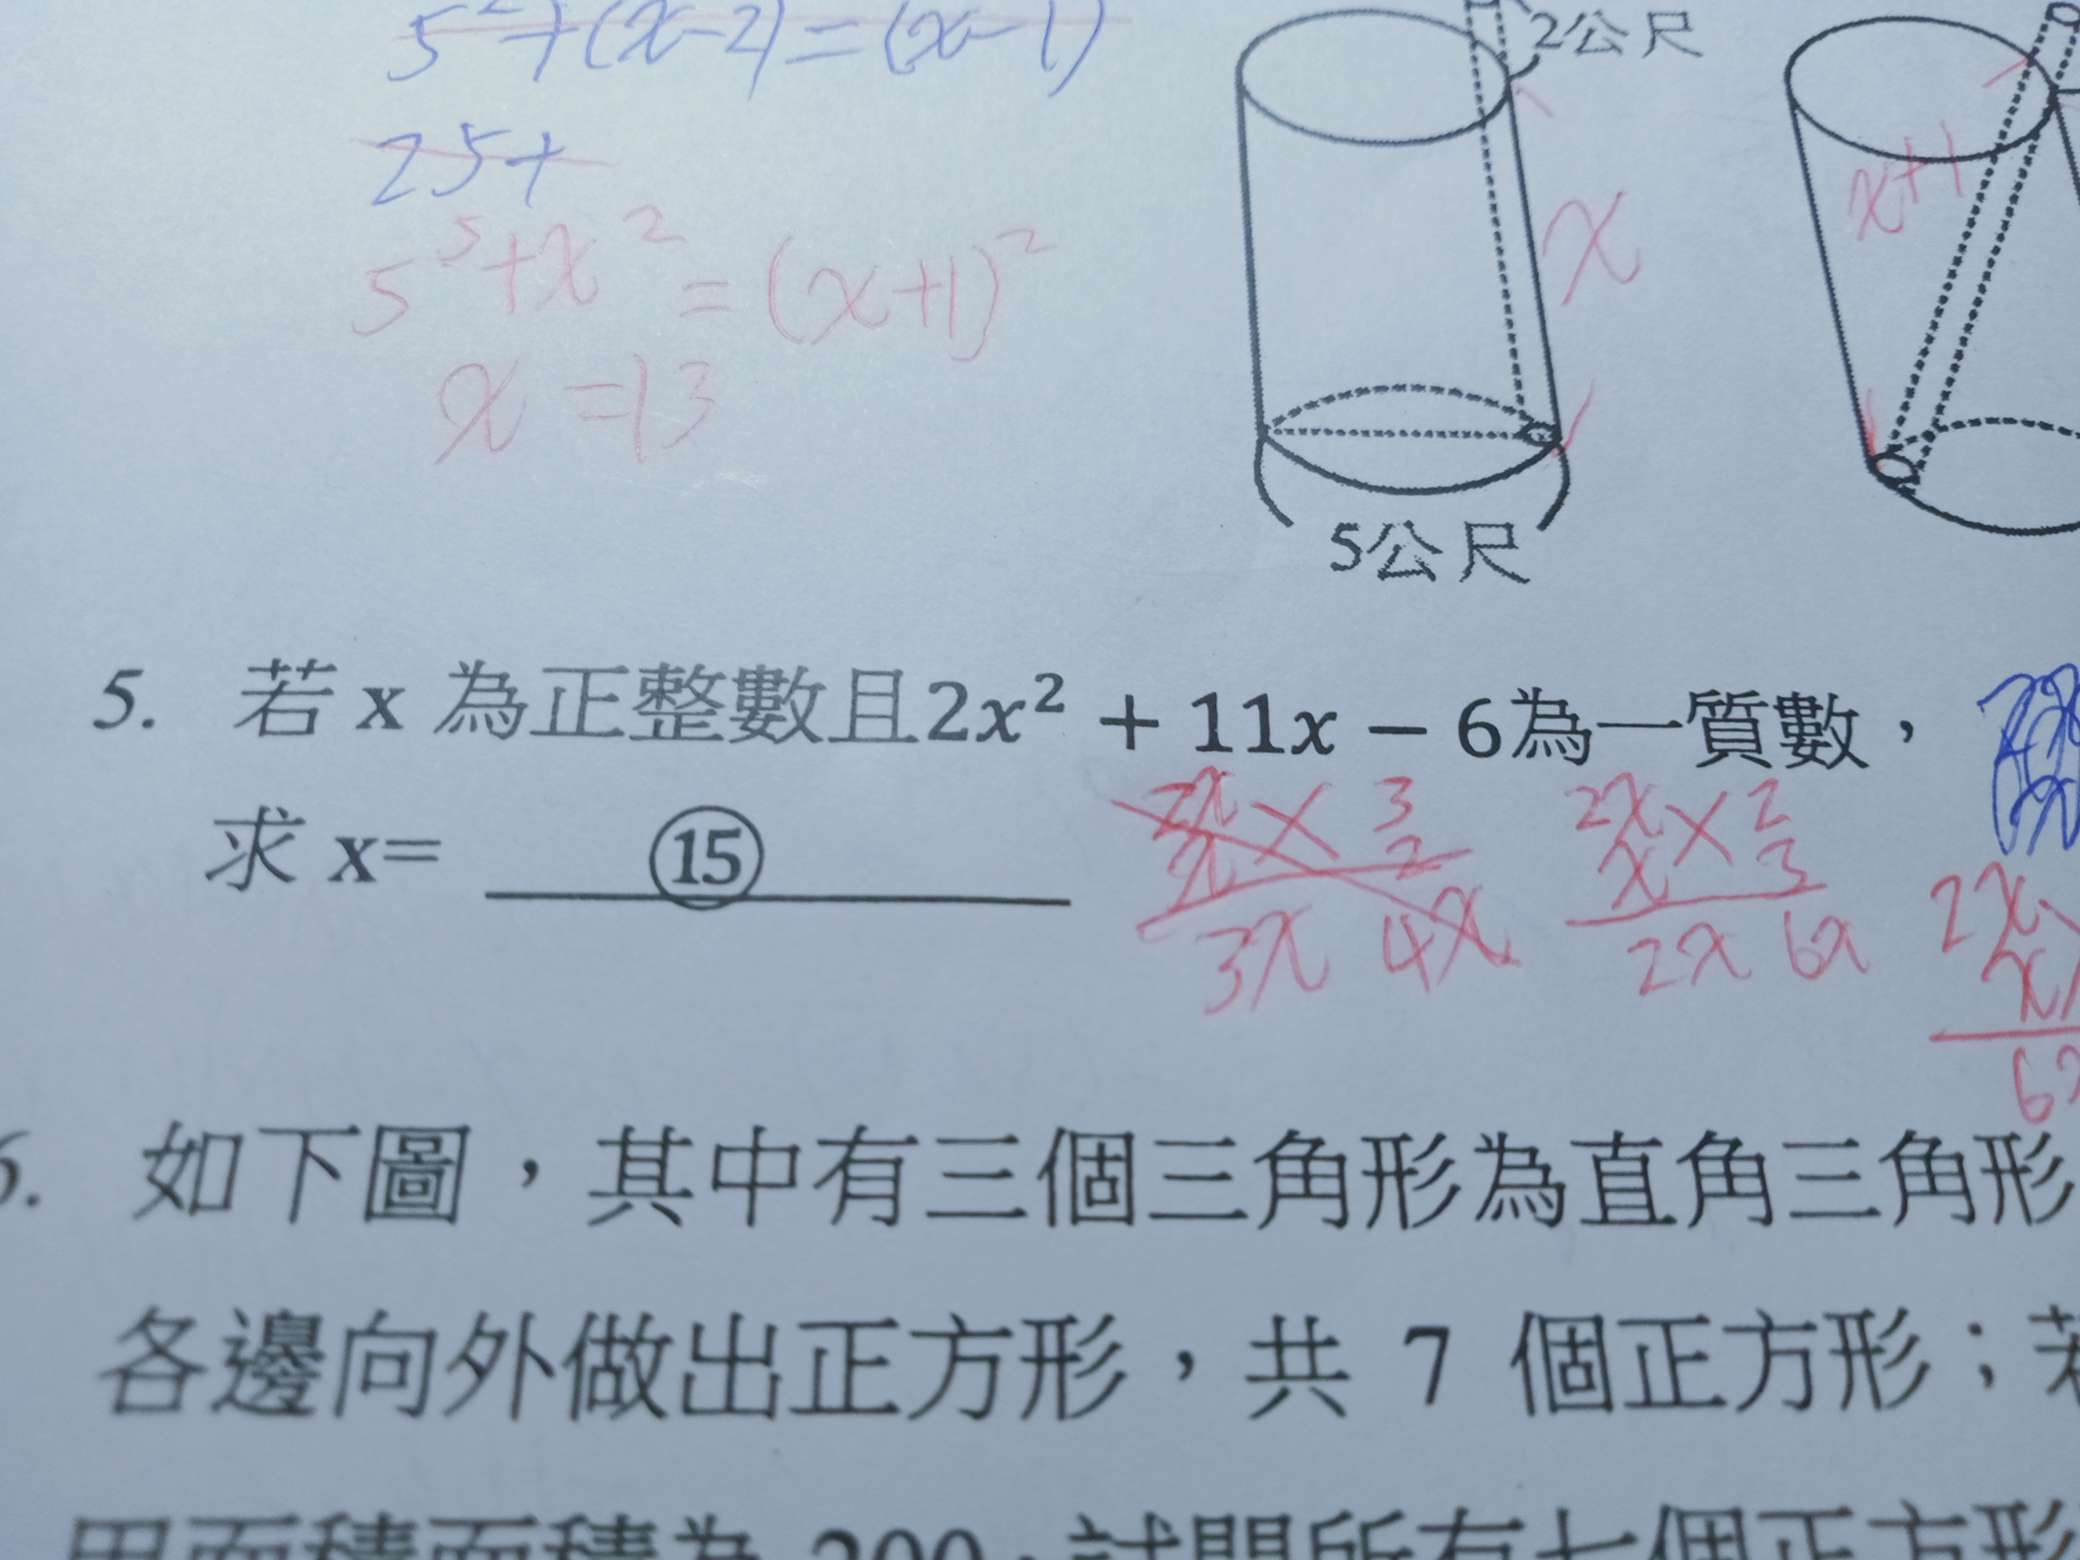 5²+(x-2)=(x-1)
2公尺
25+
x+1
x
5⁵+x²=(x+1)²
x=13
5公尺
5. 若 x 為正整數且2x² + 11x − 6為一質數，
求 x= ⑮
2x 3
x 2
3x 4x
2x 2
x 3
2x 6x
2x
x
6x
6. 如下圖，其中有三個三角形為直角三角形
各邊向外做出正方形，共 7 個正方形；若